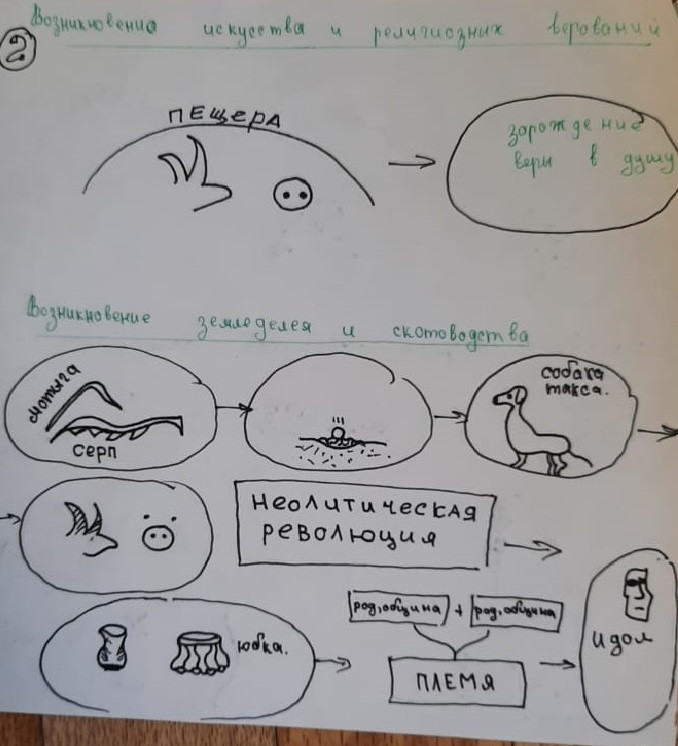 2
Возникновение искусства и религиозных верований
ПЕЩЕРА
зорождение
веры в душу
Возникновение земледелея и скотоводства
мотыга
серп
собака
такса.
НЕОЛИТИЧЕСКАЯ
РЕВОЛЮЦИЯ
род,община + род,община
юбка.
ПЛЕМЯ
идол